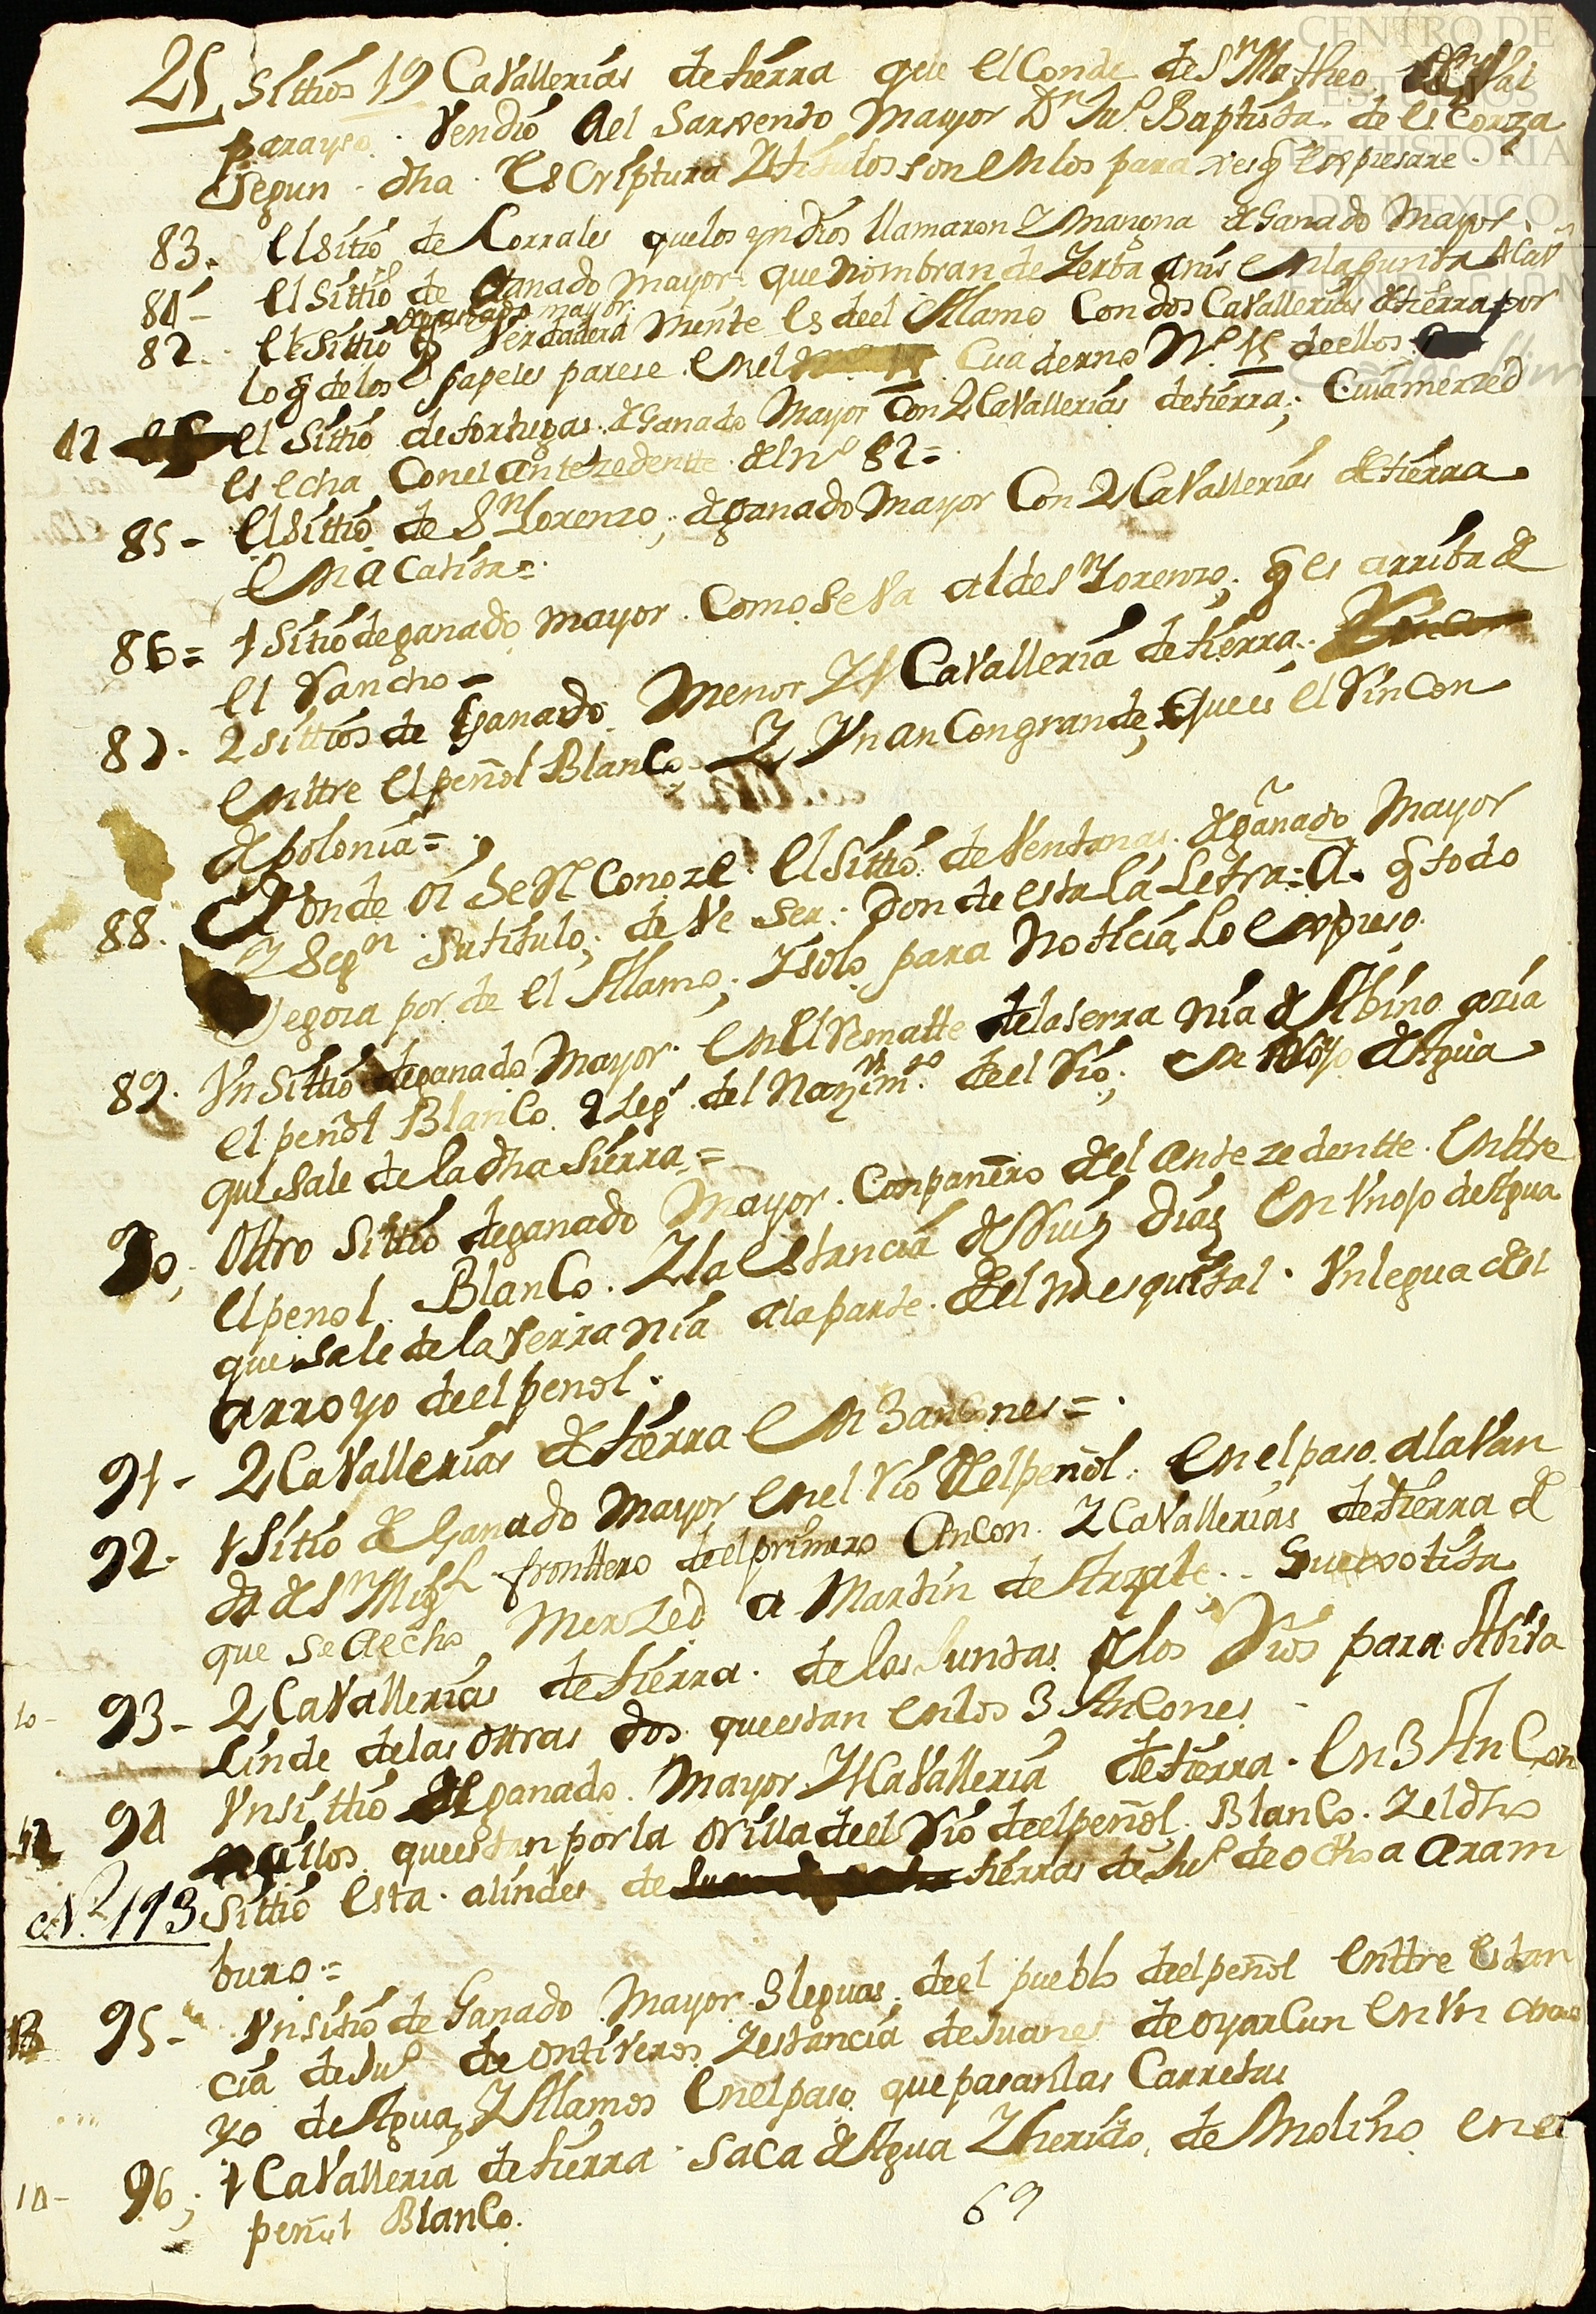 25 Sittios 19 Cavallerias de tierra que el Conde de Sn Matheo Val
parayso. Vendio Ael Sarxento Mayor Dn Jul Baptista de la Corza
Segun dha Escriptura Y titulos son en los para xes q expresare.
83. El sitio de Corrales que los yndios llamaron Y mangna de Ganado Mayor.
84 - El Sittio de Ganado Mayor que nombran de Yerba anis en la Junta
de ganado mayor
82. El Sittio q Verdadera Mente Es de el Alamo Con dos Cavallerias de tierra por
lo q de los papeles parese en el Cuaderno No 15 de ellos
12 El Sittio de tortugas. de Ganado Mayor Con 2 Cavallerias de tierra; Cuia merzed
es echa Con el antezedentte del no 82=
85 - El Sittio de Sn Lorenzo; de ganado Mayor Con 2 Cavallerias de tierra
En Acatita=
86= 1 Sitio de ganado mayor. Como Se Va al de Sn Lorenzo; q es arriba de
el Rancho -
87. 2 sittios de Ganado Menor Y 1 Cavalleria de tierra;
Enttre El peñol Blanco Y Yn anCon grande, Que es el Rincon
de polonia=
88. Donde oi Se Rl Conoze. El Sittio de Ventanas. de ganado Mayor
Y Segn Su titulo; de Ve Ser. Don de esta la Letra: A. q todo
Segoza por de el Alamo; Y solo para Noticia Lo Expreso.
89. Yn Sittio de ganado Mayor. En El Rematte de la Serra Nia de Abino azia
el peñol Blanco. 2 Legs del Nazimto de el Rio; en 1 ojo de Agua
que sale de la dha Sierra=
90; Ottro Sittio de ganado Mayor. Conpanero del Antezedentte. Enttre
El penol Blanco. Y la Estancia de Ruiz Diaz En Yn ojo de Agua
que Sale de la Serra Nia a la parte del mesquital. Yn legua del
arroyo de el penol.
91 - 2 Cavallerias de tierra En 3 anCones=
92. 1 Sitio de Ganado Mayor en el Rio de el peñol. En el paso. a la Van
da de Sn Migl fronttero de el primero Ancon. 2 Cavallerias de tierra de
que se A echo Merzed a Martin de Arzate..
10 - 93 - 2 Cavallerias de tierra. de las Juntas de los Rios para Arriva
Linde de las Ottras dos que estan en los 3 AnCones
94 Yn sittio de ganado. Mayor Y 1 Cavalleria de tierra. En 3 An Con
zillos que estan por la orilla de el Rio de el peñol. Blanco. Y el dho
No 113 Sittio Esta. alindes de tierras de Jul de ochoa Aram
buro=
95 - Yn sitio de Ganado Mayor. 3 leguas. de el pueblo de el peñol Enttre Estan
cia de Jul de ontiveros Y estancia de Juanes de oyarCun en Yn arro
yo de Agua, Y Alamos En el paso que pasan las Carretas
10 - 96; 1 Cavalleria de tierra saca de Agua Y herido, de Molino en el
peñol Blanco.
69